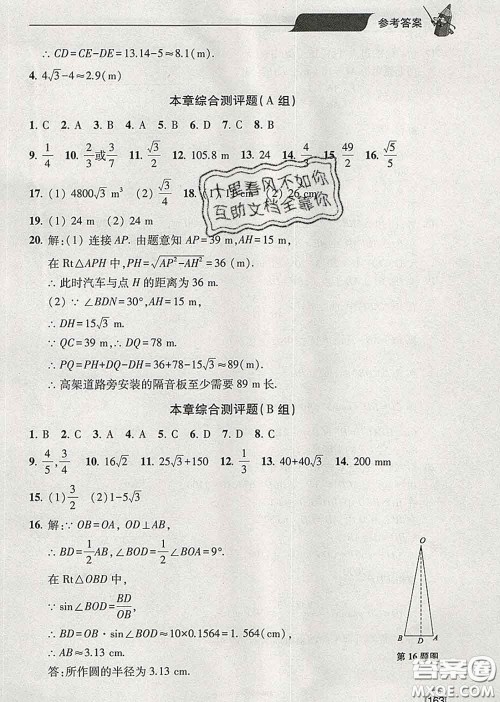 参考答案
∴ CD=CE-DE=13.14-5≈8.1(m).
4. 4√3-4≈2.9(m)
本章综合测评题(A 组)
1. C 2. A 3. B 4. A 5. A 6. C 7. C 8. B
9. 1/4 10. 2/3或3/7 11. √3/2 12. 105.8 m 13. 24 14. 4/5 15. 49/2 16. √5/5
17. (1) 4800√3 m³ (2) √3/4 18. (2) 26 cm
19. (1) 24 m (2) 24 m
20. 解:(1) 连接 AP. 由题意知 AP=39 m,AH=15 m,
在 Rt△APH 中,PH=√(AP²-AH²)=36 (m).
∴ 此时汽车与点 H 的距离为 36 m.
(2) ∵ ∠BDN=30°,AH=15 m,
∴ DH=15√3 m.
∵ QC=39 m,∴ DQ=78 m.
∴ PQ=PH+DQ-DH=36+78-15√3≈89(m).
∴ 高架道路旁安装的隔音板至少需要 89 m长.
本章综合测评题(B 组)
1. B 2. C 3. A 4. B 5. C 6. D 7. D 8. C
9. 4/5,3/4 10. 16√2 11. 25√3+150 12. 1/3 13. 40+40√3 14. 200 mm
15. (1) 3/2 (2) 1-5√3
16. 解:∵ OB=OA, OD⊥AB,
∴ BD=1/2AB,∠BOD=1/2∠BOA=9°.
在 Rt△OBD 中,
∵ sin∠BOD=BD/OB,
∴ BD=OB·sin∠BOD≈10×0.1564=1.564(cm),
∴ AB≈3.13 cm.
答:所作圆的半径为 3.13 cm.
O
B D A
第 16 题图
163
十里春风不如你
互助文档全靠你
答案圈
MXQE.COM